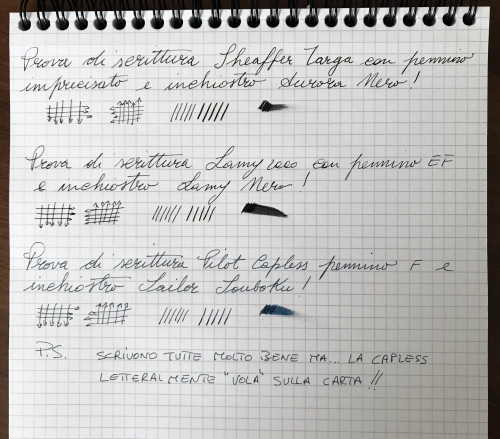 Prova di scrittura Sheaffer Targa con pennino
imprecisato e inchiostro Aurora Nero!
Prova di scrittura Lamy 2000 con pennino EF
e inchiostro Lamy Nero!
Prova di scrittura Pilot Capless pennino F e
inchiostro Sailor Souboku!
P.S. SCRIVONO TUTTE MOLTO BENE MA... LA CAPLESS
LETTERALMENTE "VOLA" SULLA CARTA!!